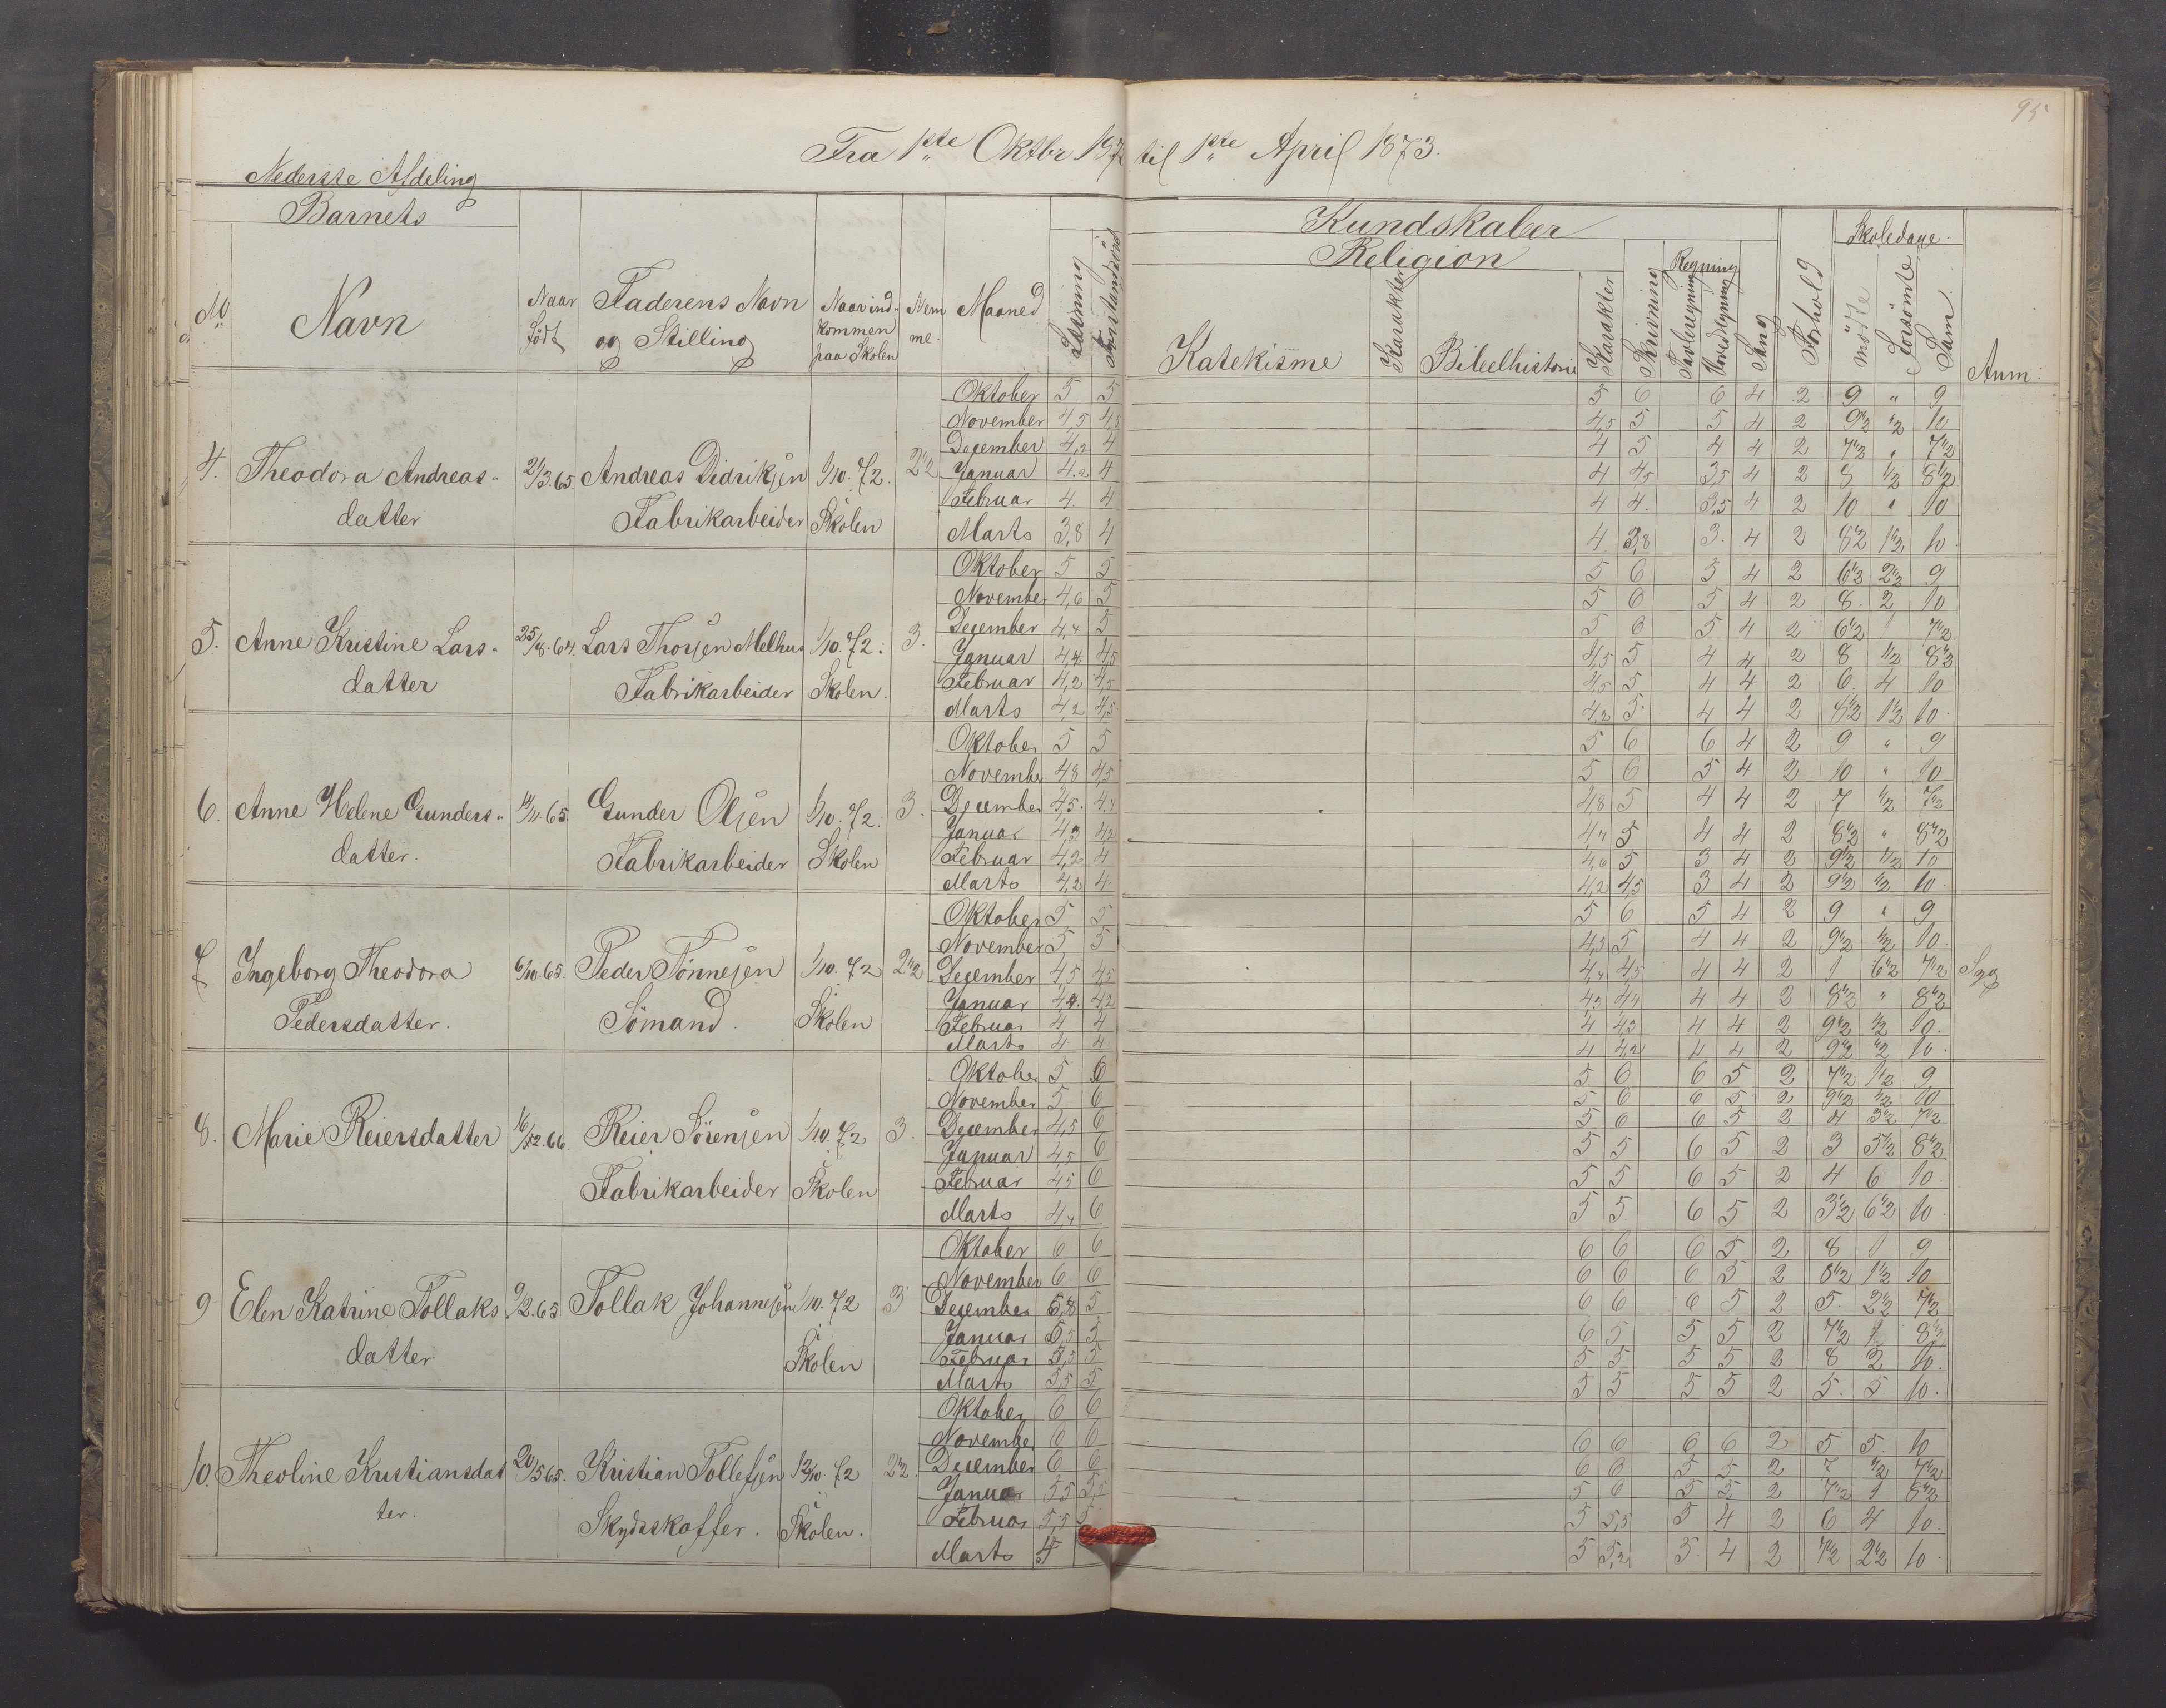 95
Fra 1ste Oktbr 1872 til 1ste April 1873.
Nederste Afdeling
Barnets
Kundskaber
Skoledage
Religion
Regning
No
Navn
Naar Født
Faderens Navn og Stilling
Naar indkommen paa Skolen
Nemme
Maaned
Læsning
Forstandsöv
Katekisme
Karakter
Bibelhistorie
Karakter
Skrivning
Tavleregning
Hovedregning
Sang
Forhold
mödte
forsömte
Sum
Anm:
4. Theodora Andreasdatter 2/3.65. Andreas Didriksen Fabrikarbeider 1/10.72. Skolen 2 1/2
Oktober 5 5 5 6 6 4 2 9 " 9
November 4,5 4,5 4,5 5 5 4 2 9 1/2 1/2 10
December 4,2 4 4 5 4 4 2 7 1/2 " 7 1/2
Januar 4.2 4 4 4,5 3,5 4 2 8 1/2 8 1/2
Februar 4 4 4 4 3,5 4 2 10 " 10
Marts 3,8 4 4 3,8 3 4 2 8 1/2 1 1/2 10
5. Anne Kristine Larsdatter 25/8.64. Lars Thorsen Melhus Fabrikarbeider 1/10.72. Skolen 3.
Oktober 5 5 5 6 5 4 2 6 1/2 2 1/2 9
November 4,6 5 5 6 5 4 2 8 2 10
December 4,4 5 5 6 5 4 2 6 1/2 1 7 1/2
Januar 4,4 4,5 4,5 5 4 4 2 8 1/2 8 1/2
Februar 4,2 4,5 4,5 5 4 4 2 6 4 10
Marts 4,2 4,5 4,2 5 4 4 2 8 1/2 1 1/2 10
6. Anne Helene Gundersdatter. 14/11.65. Gunder Olsen Fabrikarbeider 1/10.72. Skolen 3.
Oktober 5 5 5 6 6 4 2 9 " 9
November 4,8 4,5 5 6 5 4 2 10 " 10
December 4,5 4,4 4,8 5 4 4 2 7 1/2 7 1/2
Januar 4,3 4,2 4,7 5 4 4 2 8 1/2 " 8 1/2
Februar 4,2 4 4,6 5 3 4 2 9 1/2 1/2 10
Marts 4,2 4 4,2 4,5 3 4 2 9 1/2 1/2 10
7 Ingeborg Theodora Pedersdatter. 6/10.65. Peder Tönnesen Sömand. 1/10.72 Skolen 2 1/2
Oktober 5 5 5 6 5 4 2 9 " 9
November 5 5 4,5 5 4 4 2 9 1/2 1/2 10
December 4,5 4,5 4,4 4,5 4 4 2 1 6 1/2 7 1/2 Syg
Januar 4,4 4,2 4,3 4,4 4 4 2 8 1/2 " 8 1/2
Februar 4 4 4 4,3 4 4 2 9 1/2 1/2 10
Marts 4 4 4 4,2 4 4 2 9 1/2 1/2 10
8. Marie Reiersdatter Reier Sörensen Fabrikarbeider 1/10.72 Skolen 3.
Oktober 5 6 5 6 6 5 2 7 1/2 1 1/2 9
November 5 6 5 6 6 5 2 9 1/2 1/2 10
December 4,5 6 5 6 6 5 2 4 3 1/2 7 1/2
Januar 4,5 6 5 5 6 5 2 3 5 1/2 8 1/2
Februar 4,5 6 5 5 6 5 2 4 6 10
Marts 4,4 6 5 5 6 5 2 3 1/2 6 1/2 10
9 Elen Katrine Tollaksdatter 9/2.65. Tollak Johannesen 1/10.72 Skolen 3
Oktober 6 6 6 6 6 5 2 8 1 9
November 6 6 6 6 6 5 2 8 1/2 1 1/2 10
December 5,8 5 6 6 6 5 2 5 2 1/2 7 1/2
Januar 5,5 5 6 5 5 5 2 7 1/2 1 8 1/2
Februar 5,5 5 5 5 5 5 2 8 2 10
Marts 5,5 5 5 5 5 5 2 5 5 10
10. Theoline Kristiansdatter. 20/5.65. Kristian Tollefsen Skydsskaffer. 12/10.72 Skolen. 2 1/2
Oktober 6 6
November 6 6 6 6 6 6 2 5 5 10
December 6 6 6 6 5 5 2 7 1/2 7 1/2
Januar 5,5 5,5 5 6 5 5 2 7 1/2 1 8 1/2
Februar 5,5 5 5 5,5 5 4 2 6 4 10
Marts 5 5 5,2 5 4 2 7 1/2 2 1/2 10